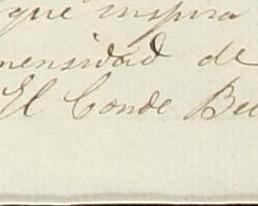 que inspira
mensidad de
El Conde Bel